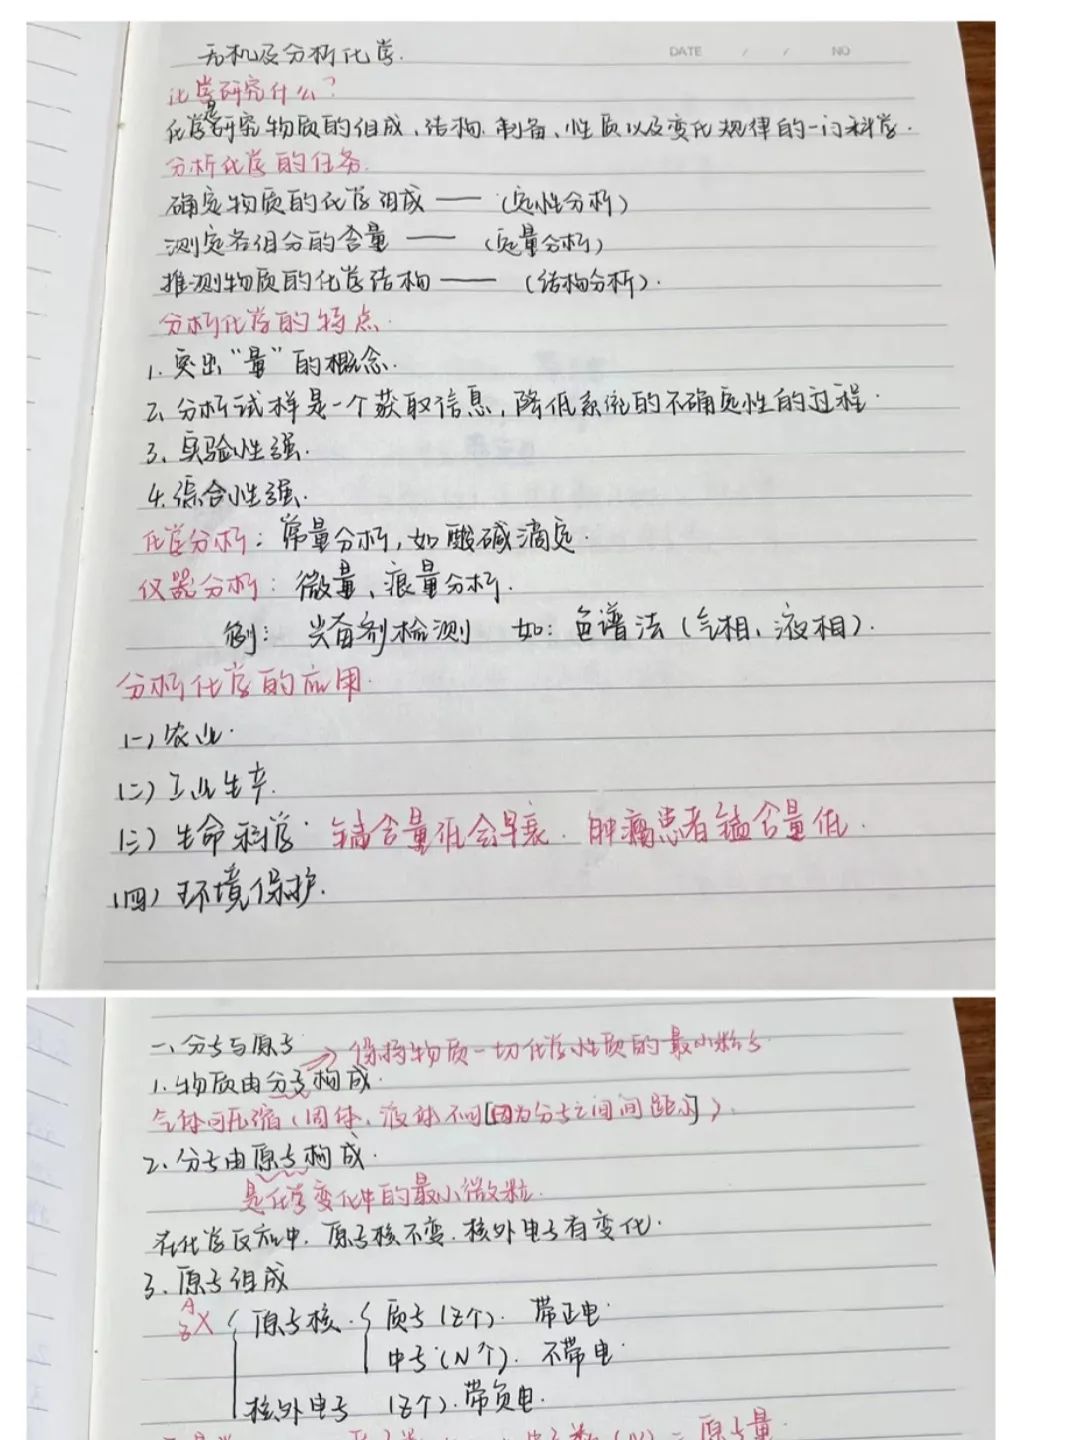 无机及分析化学.
DATE / / NO
化学研究什么?
化学是研究物质的组成、结构、制备、性质以及变化规律的一门科学.
分析化学的任务.
确定物质的化学组成——(定性分析)
测定各组分的含量——(定量分析)
推测物质的化学结构——(结构分析).
分析化学的特点.
1.突出“量”的概念.
2.分析试样是一个获取信息,降低系统的不确定性的过程.
3、实验性强.
4.综合性强.
化学分析:常量分析,如酸碱滴定.
仪器分析:微量、痕量分析.
例: 兴奋剂检测 如:色谱法(气相、液相).
分析化学的应用.
(一)农业.
(二)工业生产.
(三)生命科学. 锰含量低会早衰. 肿瘤患者锰含量低.
(四)环境保护.
一、分子与原子 → 保持物质一切化学性质的最小粒子
1.物质由分子构成.
气体可压缩(固体、液体不可[因为分子之间间距小]).
2、分子由原子构成.
是化学变化中的最小微粒.
在化学反应中.原子核不变.核外电子有变化.
3.原子组成
A Z X { 原子核.{ 质子(Z个). 带正电.
中子(N个). 不带电.
核外电子 (Z个).带负电.
(N)=原子量.